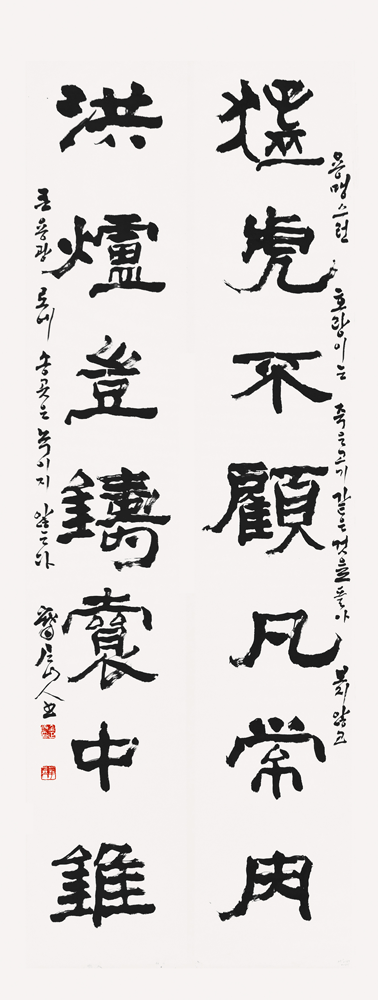 용맹스런 호랑이는 죽은고기 같은 것을 돌아 보지 않고
猛虎不顧凡常肉
洪爐豈鑄囊中錐
큰 용광 로에 송곳은 녹이지 않는다 山人書